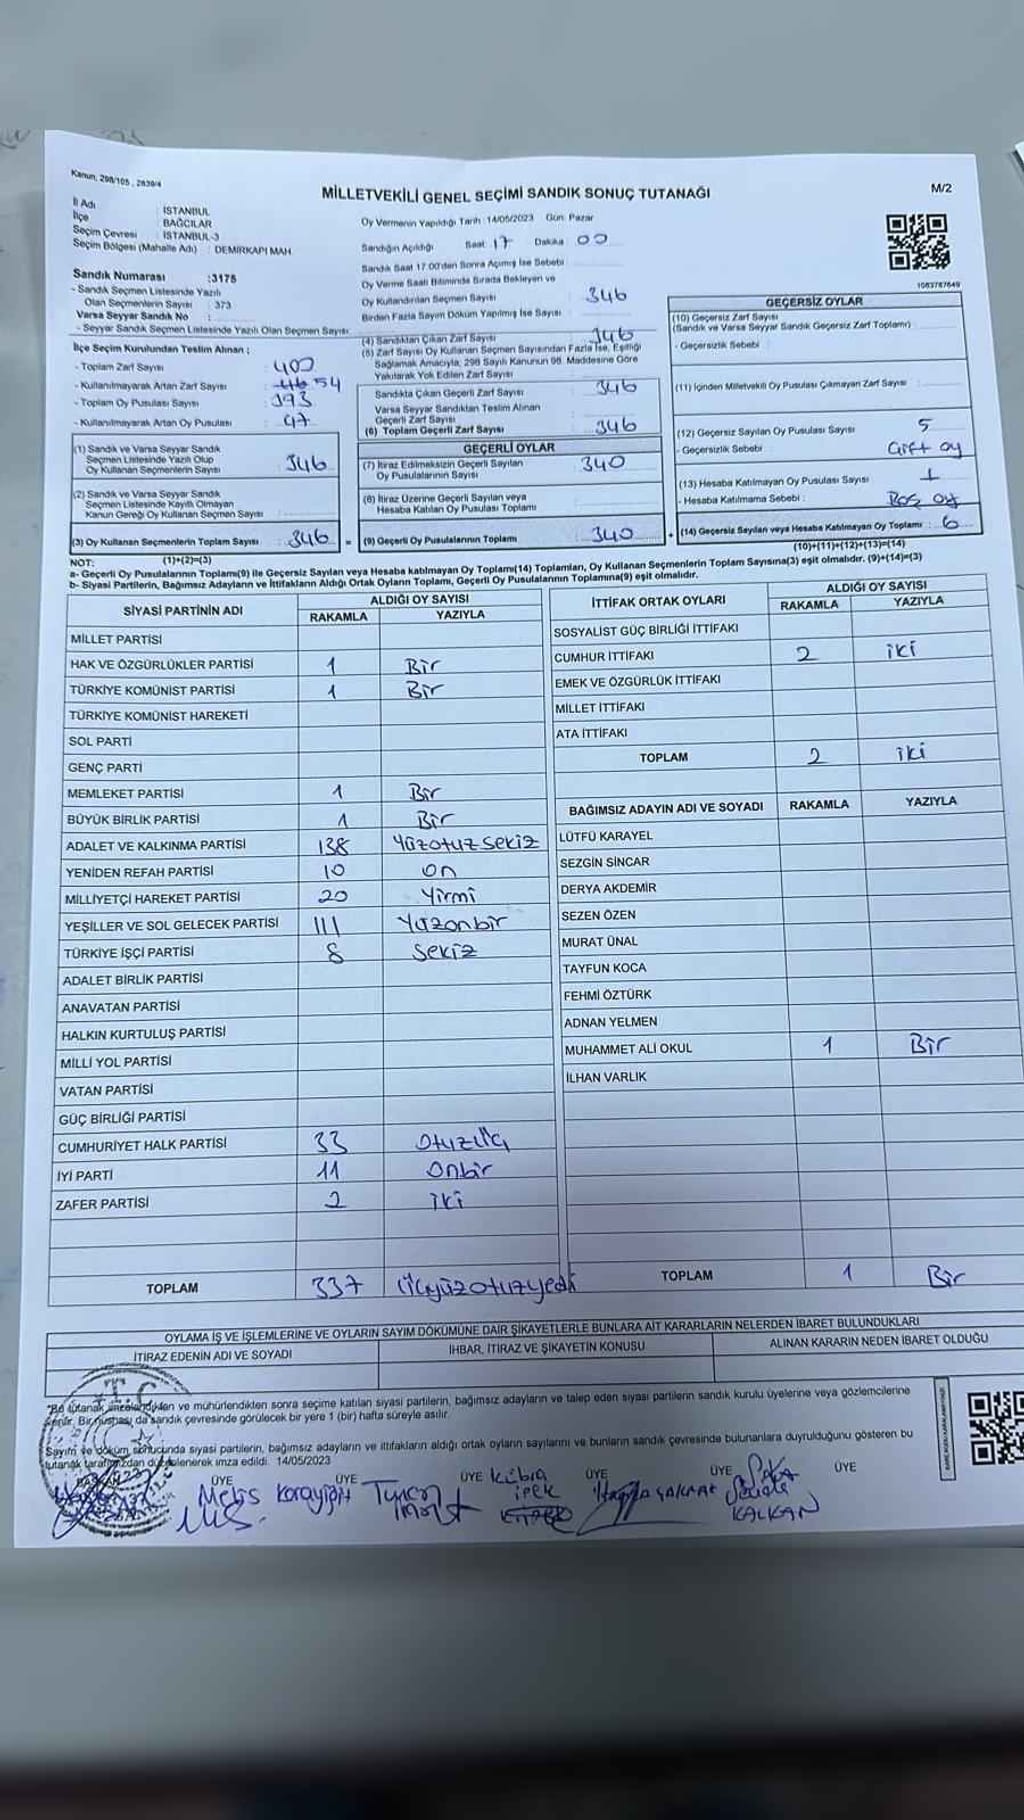 Kanun, 298/105 , 2839/4
MİLLETVEKİLİ GENEL SEÇİMİ SANDIK SONUÇ TUTANAĞI
M/2
İl Adı : İSTANBUL
İlçe : BAĞCILAR
Seçim Çevresi : İSTANBUL-3
Seçim Bölgesi (Mahalle Adı) : DEMİRKAPI MAH
Oy Vermenin Yapıldığı Tarih :14/05/2023 Gün: Pazar
Sandığın Açıldığı Saat 17 Dakika 00
Sandık Saat 17.00'den Sonra Açılmış İse Sebebi
Oy Verme Saati Bitiminde Sırada Bekleyen ve
Oy Kullandırılan Seçmen Sayısı 346
Birden Fazla Sayım Döküm Yapılmış İse Sayısı
1083787649
Sandık Numarası :3175
- Sandık Seçmen Listesinde Yazılı
Olan Seçmenlerin Sayısı : 373
Varsa Seyyar Sandık No :
- Seyyar Sandık Seçmen Listesinde Yazılı Olan Seçmen Sayısı:
İlçe Seçim Kurulundan Teslim Alınan ;
- Toplam Zarf Sayısı : 400
- Kullanılmayarak Artan Zarf Sayısı : 54
- Toplam Oy Pusulası Sayısı : 393
- Kullanılmayarak Artan Oy Pusulası : 47
(1) Sandık ve Varsa Seyyar Sandık
Seçmen Listesinde Yazılı Olup
Oy Kullanan Seçmenlerin Sayısı : 346
(2) Sandık ve Varsa Seyyar Sandık
Seçmen Listesinde Kayıtlı Olmayan
Kanun Gereği Oy Kullanan Seçmen Sayısı :
(3) Oy Kullanan Seçmenlerin Toplam Sayısı : 346 =
(4) Sandıktan Çıkan Zarf Sayısı 346
(5) Zarf Sayısı Oy Kullanan Seçmen Sayısından Fazla İse, Eşitliği
Sağlamak Amacıyla, 298 Sayılı Kanunun 98. Maddesine Göre
Yakılarak Yok Edilen Zarf Sayısı
Sandıkta Çıkan Geçerli Zarf Sayısı 346
Varsa Seyyar Sandıktan Teslim Alınan
Geçerli Zarf Sayısı
(6) Toplam Geçerli Zarf Sayısı 346
GEÇERLİ OYLAR
(7) İtiraz Edilmeksizin Geçerli Sayılan
Oy Pusulalarının Sayısı : 340
(8) İtiraz Üzerine Geçerli Sayılan veya
Hesaba Katılan Oy Pusulası Toplamı
(9) Geçerli Oy Pusulalarının Toplamı : 340 +
GEÇERSİZ OYLAR
(10) Geçersiz Zarf Sayısı
(Sandık ve Varsa Seyyar Sandık Geçersiz Zarf Toplamı)
- Geçersizlik Sebebi :
(11) İçinden Milletvekili Oy Pusulası Çıkmayan Zarf Sayısı
(12) Geçersiz Sayılan Oy Pusulası Sayısı 5
- Geçersizlik Sebebi : Çift oy
(13) Hesaba Katılmayan Oy Pusulası Sayısı 1
- Hesaba Katılmama Sebebi : Boş oy
(14) Geçersiz Sayılan veya Hesaba Katılmayan Oy Toplamı : 6
NOT: (1)+(2)=(3) (10)+(11)+(12)+(13)=(14)
a- Geçerli Oy Pusulalarının Toplamı(9) ile Geçersiz Sayılan veya Hesaba katılmayan Oy Toplamı(14) Toplamları, Oy Kullanan Seçmenlerin Toplam Sayısına(3) eşit olmalıdır. (9)+(14)=(3)
b- Siyasi Partilerin, Bağımsız Adayların ve İttifakların Aldığı Ortak Oyların Toplamı, Geçerli Oy Pusulalarının Toplamına(9) eşit olmalıdır.
SİYASİ PARTİNİN ADI ALDIĞI OY SAYISI
RAKAMLA YAZIYLA
MİLLET PARTİSİ
HAK VE ÖZGÜRLÜKLER PARTİSİ 1 Bir
TÜRKİYE KOMÜNİST PARTİSİ 1 Bir
TÜRKİYE KOMÜNİST HAREKETİ
SOL PARTİ
GENÇ PARTİ
MEMLEKET PARTİSİ 1 Bir
BÜYÜK BİRLİK PARTİSİ 1 Bir
ADALET VE KALKINMA PARTİSİ 138 Yüzotuzsekiz
YENİDEN REFAH PARTİSİ 10 on
MİLLİYETÇİ HAREKET PARTİSİ 20 Yirmi
YEŞİLLER VE SOL GELECEK PARTİSİ 111 Yüzonbir
TÜRKİYE İŞÇİ PARTİSİ 8 Sekiz
ADALET BİRLİK PARTİSİ
ANAVATAN PARTİSİ
HALKIN KURTULUŞ PARTİSİ
MİLLİ YOL PARTİSİ
VATAN PARTİSİ
GÜÇ BİRLİĞİ PARTİSİ
CUMHURİYET HALK PARTİSİ 33 Otuzüç
İYİ PARTİ 11 Onbir
ZAFER PARTİSİ 2 iki
TOPLAM 337 Üçyüzotuzyedi
İTTİFAK ORTAK OYLARI ALDIĞI OY SAYISI
RAKAMLA YAZIYLA
SOSYALİST GÜÇ BİRLİĞİ İTTİFAKI
CUMHUR İTTİFAKI 2 iki
EMEK VE ÖZGÜRLÜK İTTİFAKI
MİLLET İTTİFAKI
ATA İTTİFAKI
TOPLAM 2 iki
BAĞIMSIZ ADAYIN ADI VE SOYADI RAKAMLA YAZIYLA
LÜTFÜ KARAYEL
SEZGİN SİNCAR
DERYA AKDEMİR
SEZEN ÖZEN
MURAT ÜNAL
TAYFUN KOCA
FEHMİ ÖZTÜRK
ADNAN YELMEN
MUHAMMET ALİ OKUL 1 Bir
İLHAN VARLIK
TOPLAM 1 Bir
OYLAMA İŞ VE İŞLEMLERİNE VE OYLARIN SAYIM DÖKÜMÜNE DAİR ŞİKAYETLERLE BUNLARA AİT KARARLARIN NELERDEN İBARET BULUNDUKLARI
İTİRAZ EDENİN ADI VE SOYADI İHBAR, İTİRAZ VE ŞİKAYETİN KONUSU ALINAN KARARIN NEDEN İBARET OLDUĞU
T.C.
*Bu tutanak imzalandıktan ve mühürlendikten sonra seçime katılan siyasi partilerin, bağımsız adayların ve talep eden siyasi partilerin sandık kurulu üyelerine veya gözlemcilerine
verilir. Bir nüshası da sandık çevresinde görülecek bir yere 1 (bir) hafta süreyle asılır.
Sayım ve döküm sonucunda siyasi partilerin, bağımsız adayların ve ittifakların aldığı ortak oyların sayılarını ve bunların sandık çevresinde bulunanlara duyurulduğunu gösteren bu
tutanak tarafımızdan düzenlenerek imza edildi. 14/05/2023
BAŞKAN ÜYE ÜYE ÜYE ÜYE ÜYE ÜYE
Melis Karayiğit Tuncer Kübra ipek
KALKAN